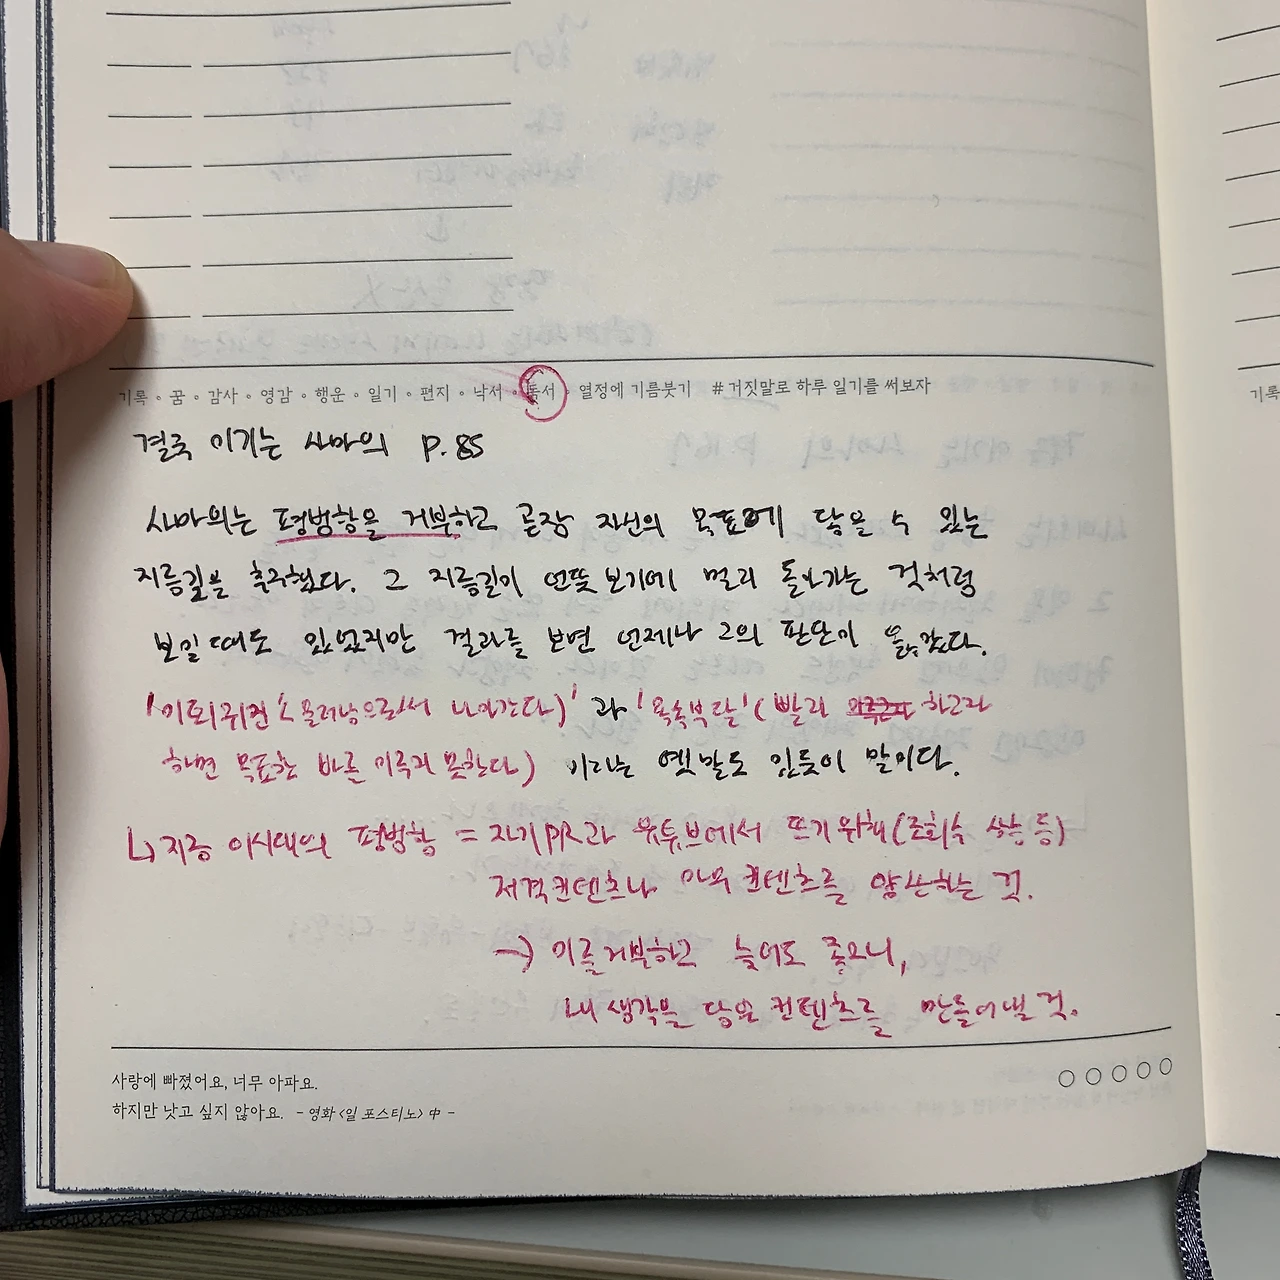 기록 ◦ 꿈 ◦ 감사 ◦ 영감 ◦ 행운 ◦ 일기 ◦ 편지 ◦ 낙서 ◦ 독서 ◦ 열정에 기름붓기 # 거짓말로 하루 일기를 써보자
기록
결국 이기는 사마의 P.85
사마의는 평범함을 거부하고 곧장 자신의 목표에 닿을 수 있는
지름길을 추구했다. 그 지름길이 언뜻 보기에 멀리 돌아가는 것처럼
보일 때도 있었지만 결과를 보면 언제나 그의 판단이 옳았다.
'이퇴위진(물러남으로써 나아간다)' 과 '욕속부달' (빨리 하고자
하면 목표한 바를 이루지 못한다) 이라는 옛말도 있듯이 말이다.
↳ 지금 이시대의 평범함 = 자기PR과 유튜브에서 뜨기위해(조회수 상승 등)
저격컨텐츠나 아무 컨텐츠를 양산하는 것.
→ 이를 거부하고 늦어도 좋으니,
내 생각을 담은 컨텐츠를 만들어낼 것.
사랑에 빠졌어요, 너무 아파요.
하지만 낫고 싶지 않아요. - 영화 <일 포스티노> 中 -